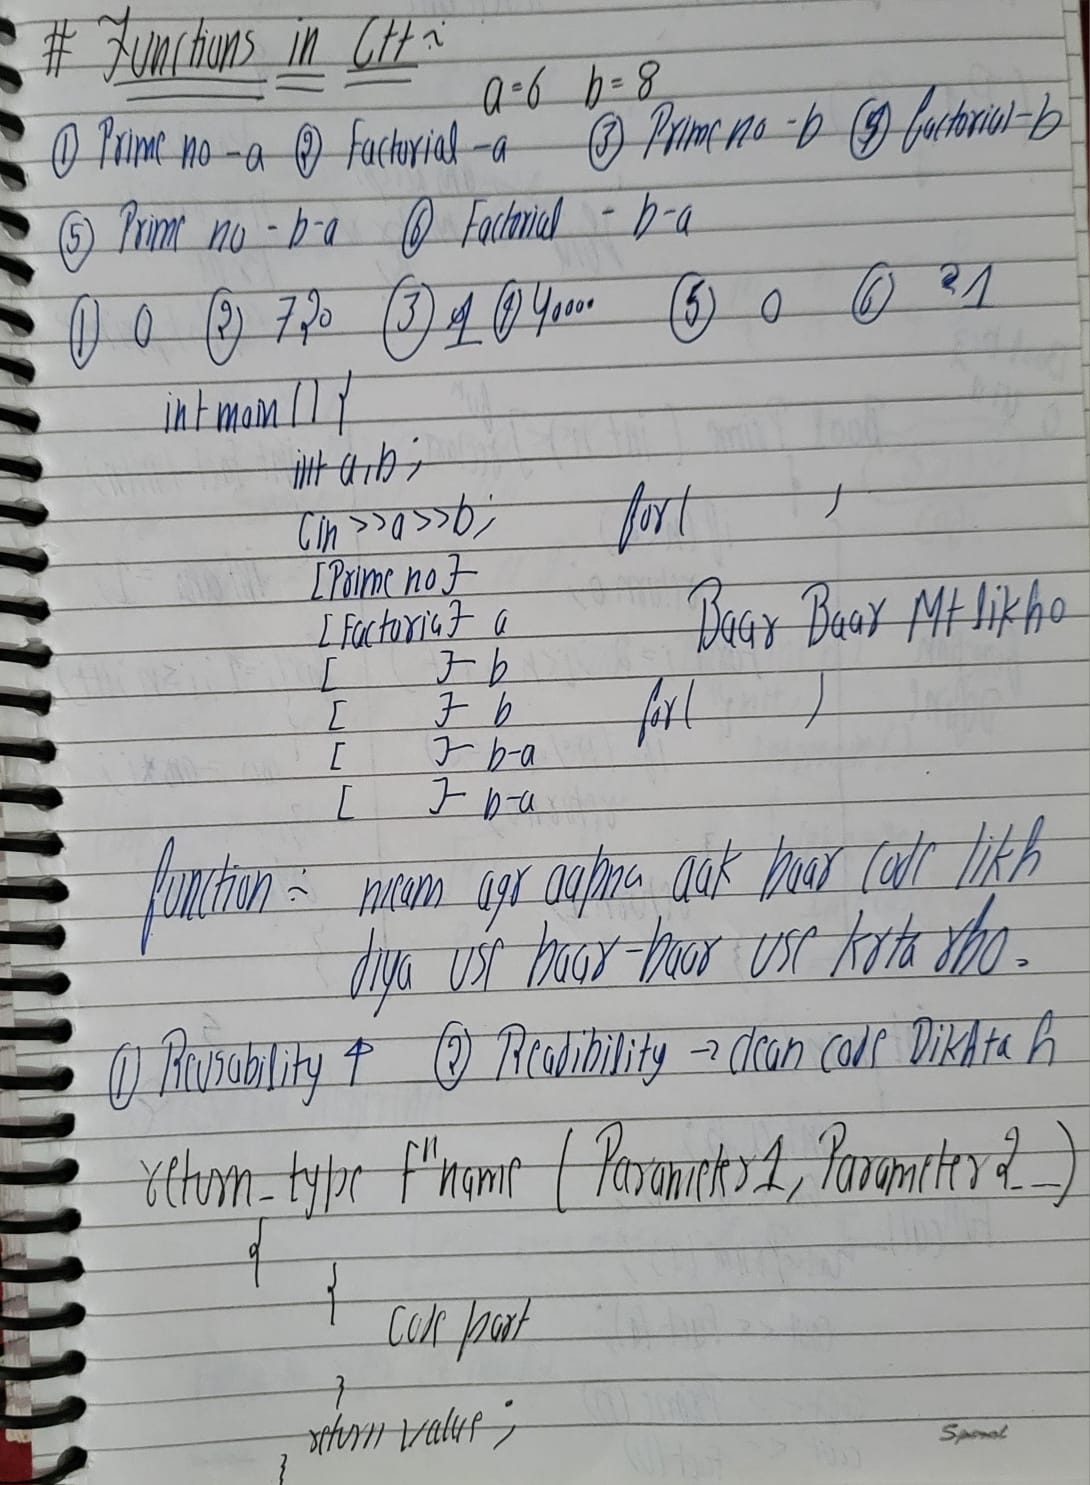 # Functions in C++ :-
a=6 b=8
① Prime no -a ② Factorial -a ③ Prime no -b ④ factorial -b
⑤ Prime no - b-a ⑥ Factorial - b-a
① 0 ② 720 ③ 1 ④ 40000 ⑤ 0 ⑥ 21
int main() {
int a,b;
Cin >>a>>b; for( )
[Prime no]-
[Factoria]- a Baar Baar Mt likho
[ ]- b
[ ]- b for( )
[ ]- b-a
[ ]- b-a
function :- meam agr aapna aak baar code likh
diya use baar-baar use krta rho.
① Reusability ↑ ② Readibility → clean code Dikhta h
return_type Fⁿ name (Parameter1, Parameter 2 _ _)
{
{
Code part
}
return value;
}